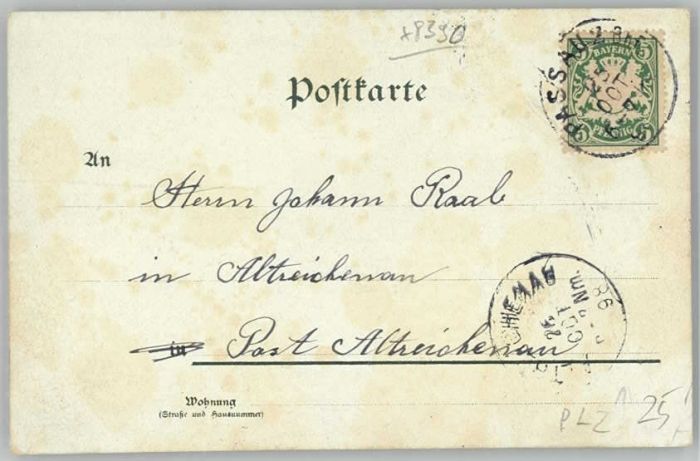 x8390
Postkarte
BAYERN
5 5
PFENNIG
5 5
PASSAU 2
OCT
An
Herrn Johann Raab
in Altreichenau
in Post Altreichenau
98
Nm.
OCT
Wohnung
(Straße und Hausnummer)
PLZ 25